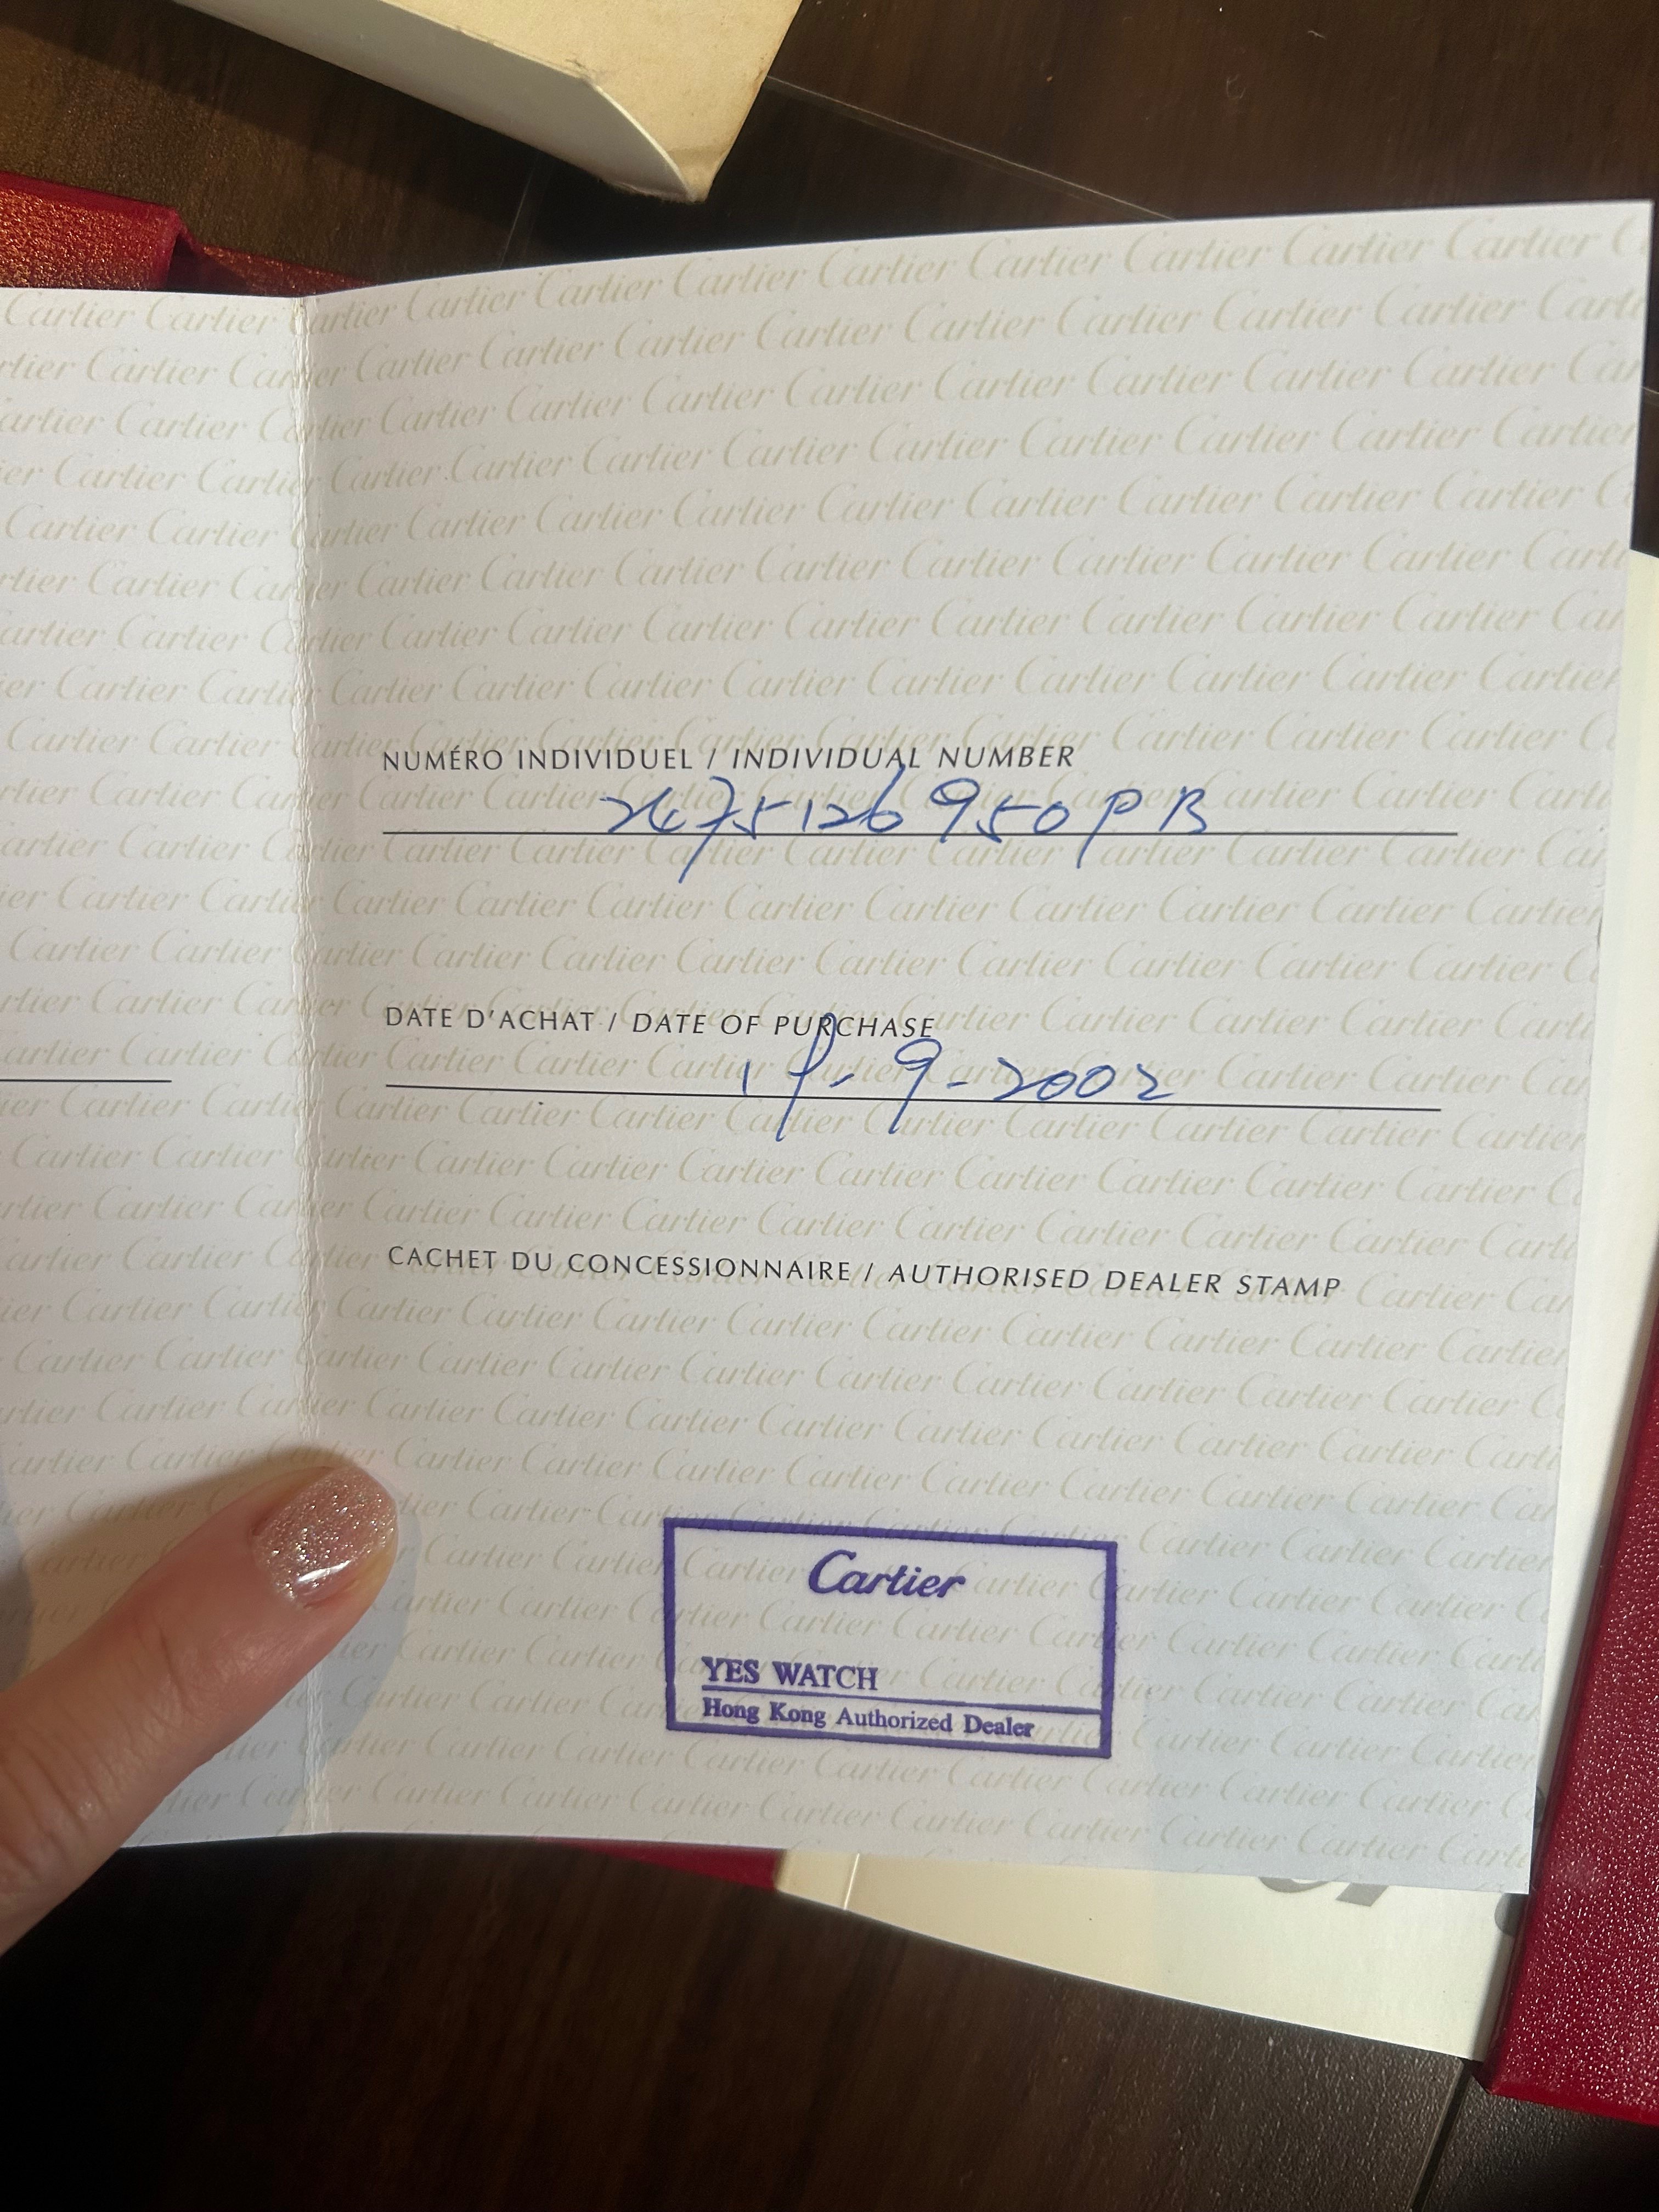 NUMÉRO INDIVIDUEL / INDIVIDUAL NUMBER
2475126950PB
DATE D'ACHAT / DATE OF PURCHASE
18-9-2002
CACHET DU CONCESSIONNAIRE / AUTHORISED DEALER STAMP
Cartier
YES WATCH
Hong Kong Authorized Dealer